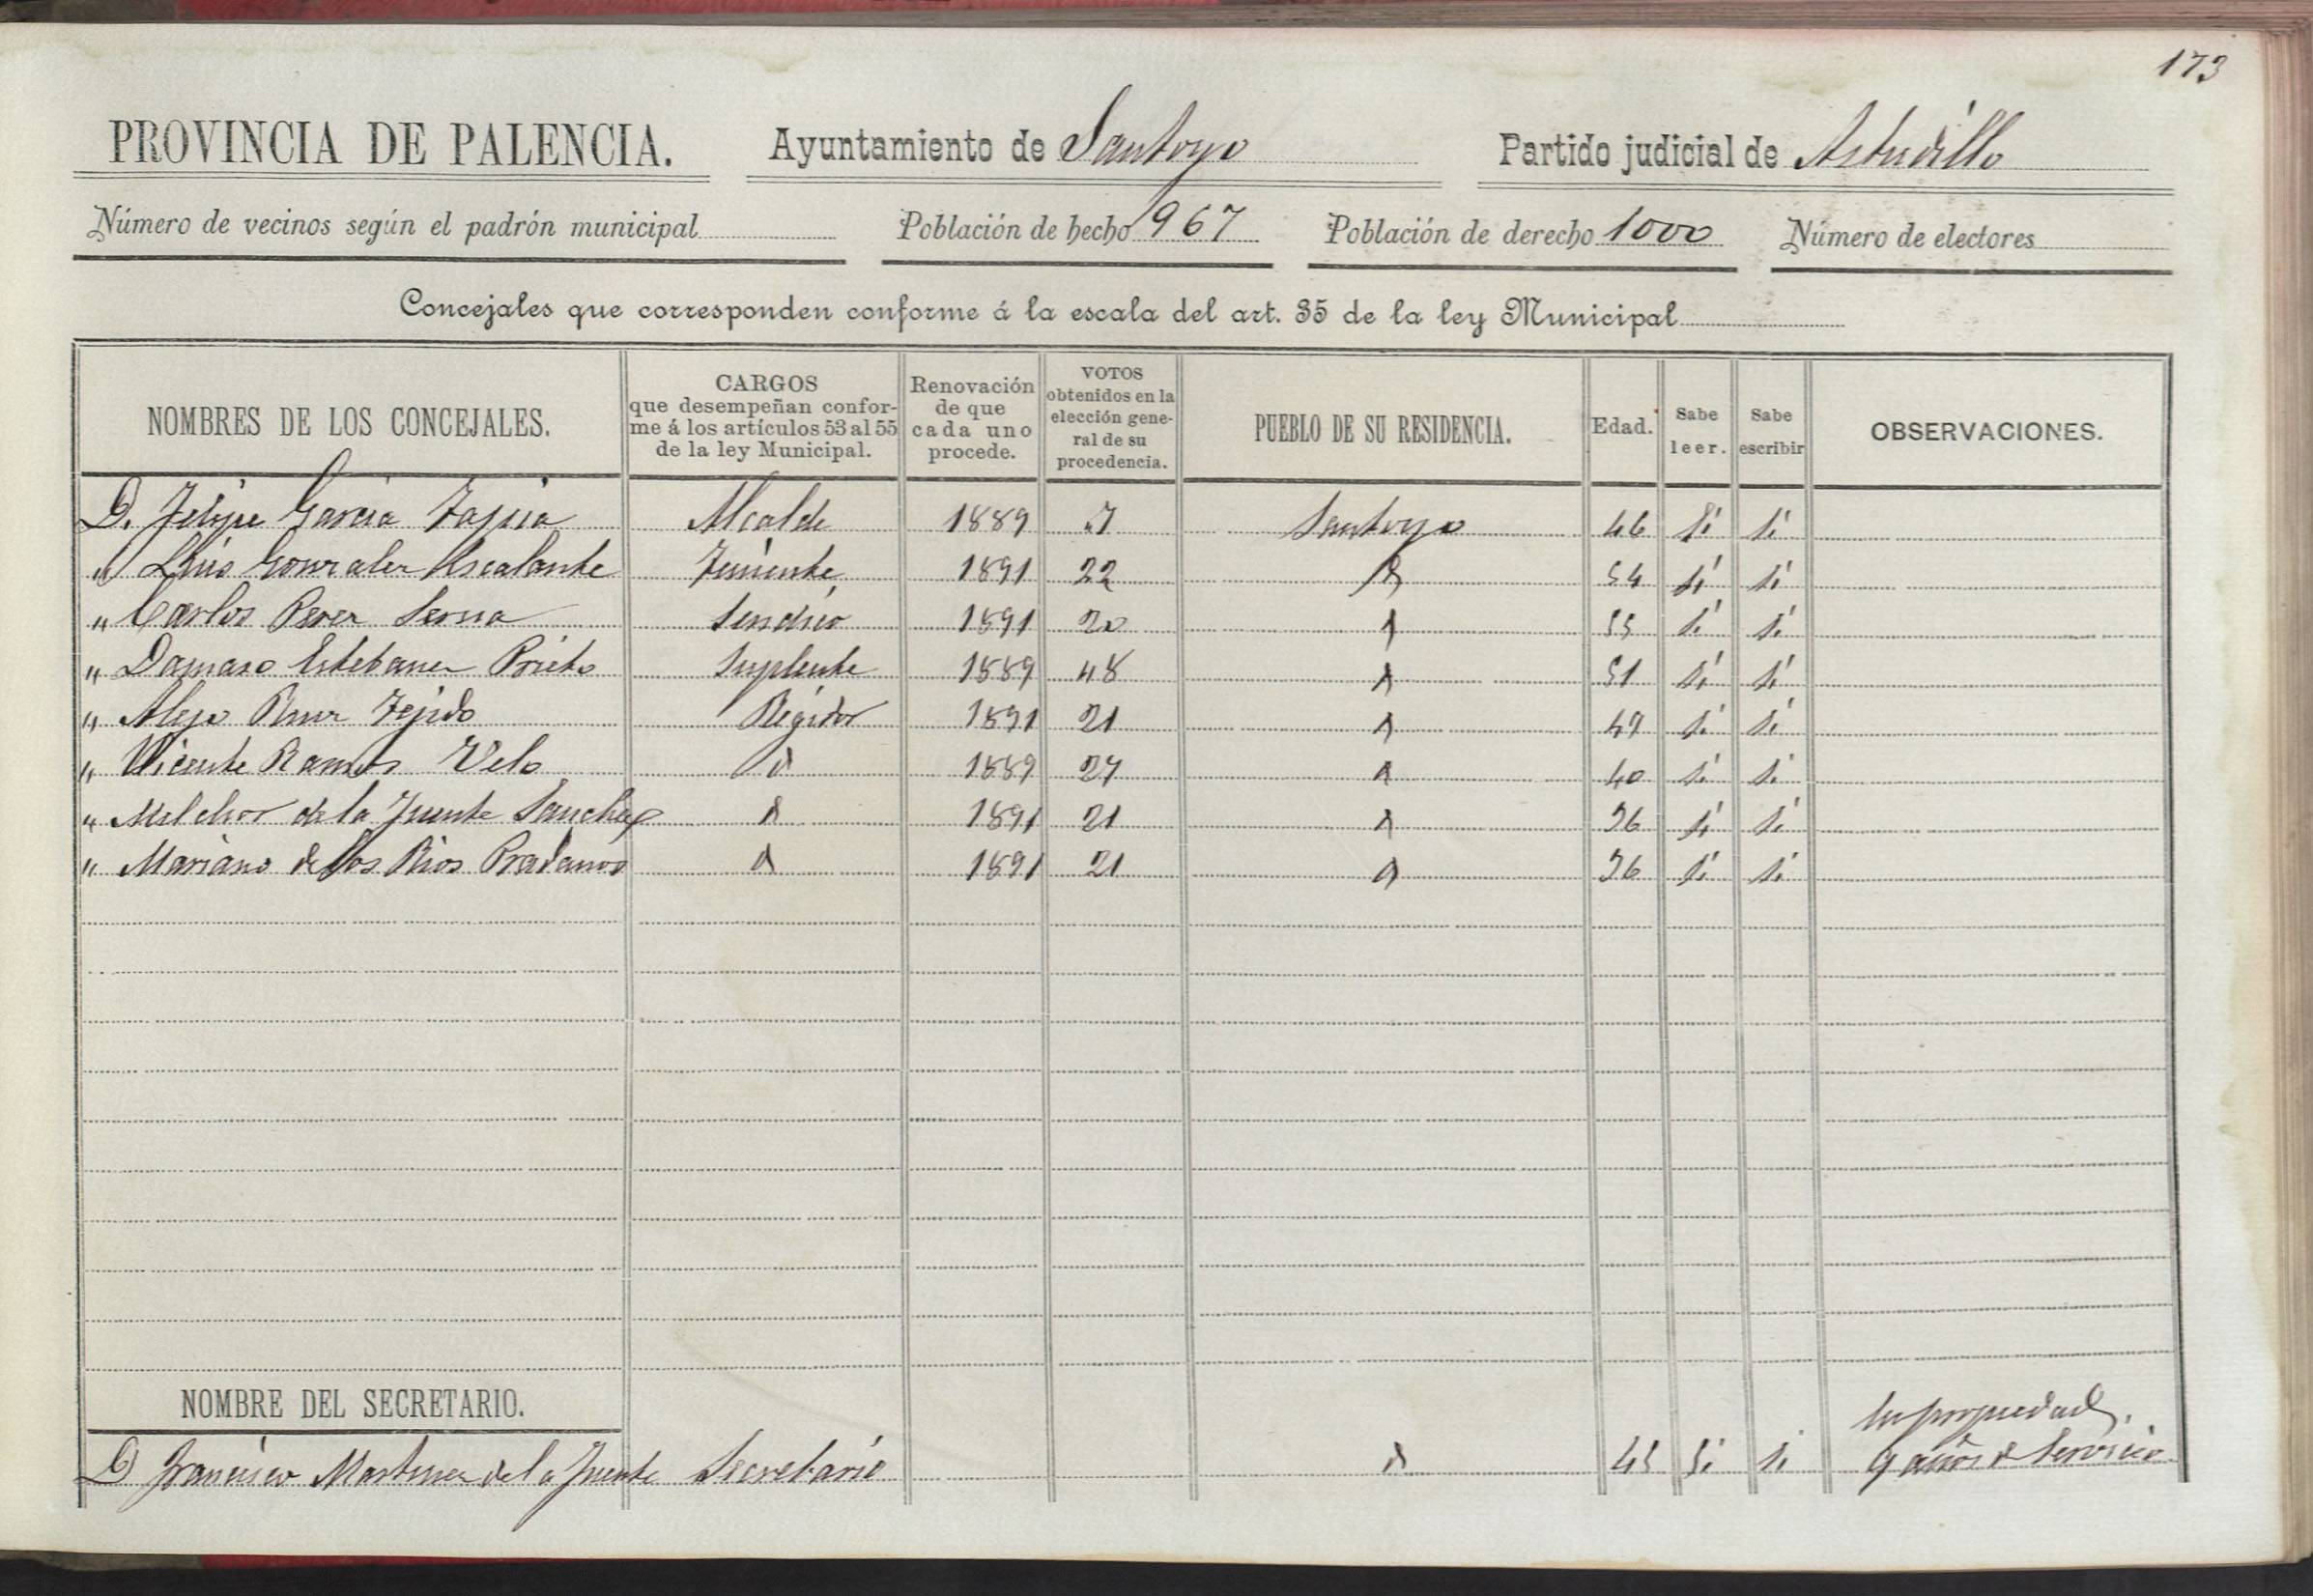 173
PROVINCIA DE PALENCIA. Ayuntamiento de Santoyo Partido judicial de Astudillo
Número de vecinos según el padrón municipal Población de hecho 967 Población de derecho 1000 Número de electores
Concejales que corresponden conforme á la escala del art. 35 de la ley Municipal
NOMBRES DE LOS CONCEJALES. CARGOS que desempeñan confor- me á los artículos 53 al 55 de la ley Municipal. Renovación de que cada uno procede. VOTOS obtenidos en la elección gene- ral de su procedencia. PUEBLO DE SU RESIDENCIA. Edad. Sabe leer. Sabe escribir OBSERVACIONES.
D. Felipe Garcia Tapia Alcalde 1889 Santoyo 46 Si Si
" Luis Gonzalez Escalante Teniente 1891 22 54 si si
" Carlos Perez Serna Sindico 1891 20 55 si si
" Damaso Estebanez Prieto Suplente 1889 48 51 si si
" Alejo Tejido Regidor 1891 21 si si
" Vicente Ramos Velo 1889 40 si si
" Melchor de la Fuente Sanchez 1891 21 36 si si
" Mariano de los Rios Pradanos 1891 21 36 si si
NOMBRE DEL SECRETARIO.
D Francisco Martinez de la Fuente Secretario 45 Si si En propiedad,
9 años de Servicio